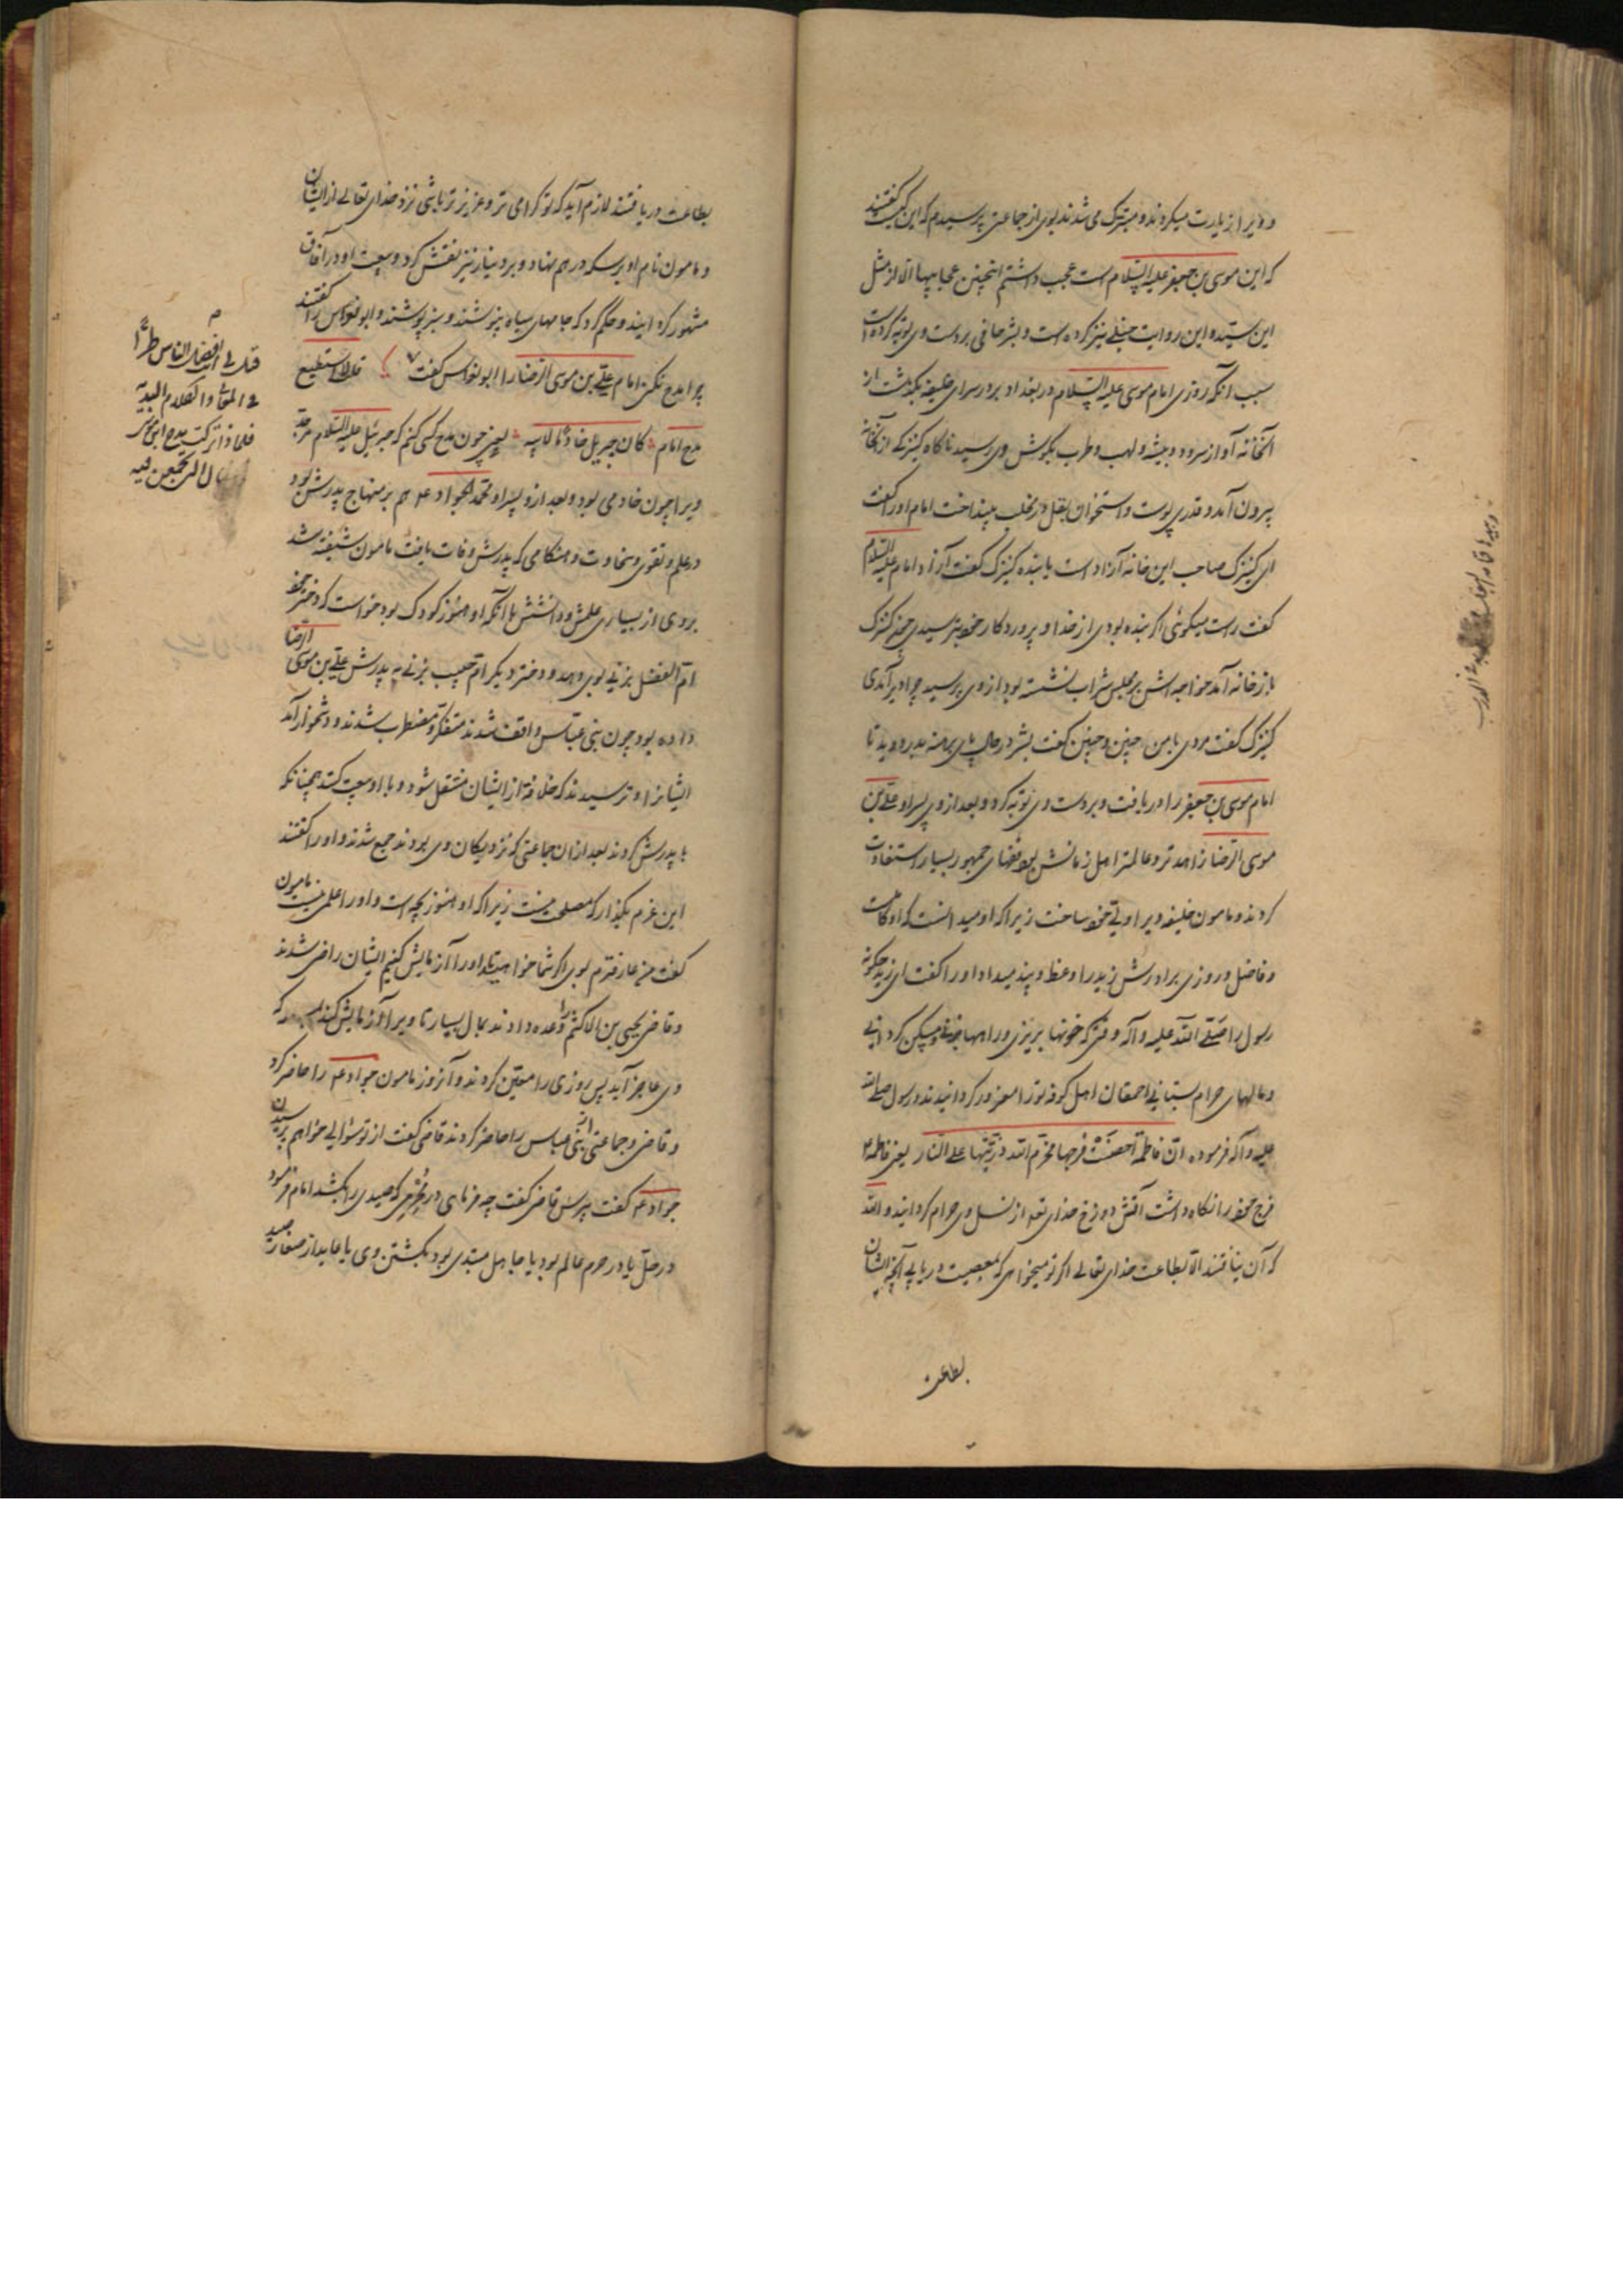 و ویرا زیارت میکردند و متبرک می شدند بوی از جماعتی پرسیدم که این کیست گفتند
که این موسی بن جعفر علیه السّلام است عجب داشتم اینچنین عجایبها الّا از مثل
این سیّد و این روایت حنبلی نیز کرده است و بشر حافی بر دست وی توبه کرده است
سبب آنکه روزی امام موسی علیه السّلام در بغداد بر در سرای خلیفه بگذشت از
آنخانه آواز سرود و بیشه و لهب و طرب بگوش وی رسید ناگاه کنیزکی از آنخانه
بیرون آمد و قدری پوست و استخوان بقل در مخلب بینداخت امام او را گفت
ای کنیزک صاحب این خانه آزاد است یا بنده کنیزک گفت آزاد امام علیه السّلام
گفت راست میگوئی اگر بنده بودی از خدا و پروردگار خود بترسیدی چون کنیزک
باز خانه آمد خواجه اش بر مجلس شراب نشسته بود از وی پرسید چرا دیر آمدی
کنیزک گفت مردی با من چنین و چنین گفت بشر در حال پای برهنه بدر دوید تا
امام موسی بن جعفر را دریافت و بر دست وی توبه کرد و بعد از وی پسر او علی بن
موسی الرّضا زاهدتر و عالمتر اهل زمانش بود فقهای جمهور بسیار استفادت
کردند و مامون خلیفه ویرا ولی عهد خود ساخت زیرا که او میدانست که او کامل است
و فاضل و روزی برادرش زید را وعظ و پند میداد او را گفت ای زید چگونه
رسول را صلّی اللّه علیه و آله وقتی که خونها بریزی و راهها
و مالهای حرام بستانی احمقان اهل کوفه تو را مغرور گردانیدند و رسول صلی الله
علیه و آله فرموده انّ فاطمة احصنت فرجها فحرّم اللّه ذرّیّتها علی النّار یعنی فاطمه ع
فرج خود را نگاه داشت آتش دوزخ خدای تع از نسل وی حرام گردانید و اللّه
که آن نیافتند الّا بطاعت خدای تعالی اگر تو میخواهی که بمعصیت دریابی آنچه ایشان
بطاعت
بطاعت دریافتند لازم آید که تو گرامی تر و عزیزتر باشی نزد خدای تعالی از ایشان
و مامون نام او بر سکه درهم نهاد و بر دینار نیز نقش کرد و بیعت او در آفاق
مشهور گردانید و حکم کرد که جامهای سیاه نپوشند و سبز پوشند و ابو نواس را گفتند
چرا مدح نکنی امام علیّ بن موسی الرّضا را ابو نواس گفت قلت لا استطیع
مدح امام کان جبریل خادمًا لابیه یعنی چون مدح کسی کنم که جبرئیل علیه السّلام مر جدّ
ویرا چون خادمی بود و بعد از و پسر او محمّد الجواد ع هم بر منهاج پدرش بود
در علم و تقوی و سخاوت و هنگامی که پدرش وفات یافت مامون شیفته شد
بر وی از بسیاری علمش و دانشش با آنکه او هنوز کودک بود خواست که دختر خود
امّ الفضل بزنی بوی دهد و دختر دیگر امّ حبیب بزنی به پدرش علیّ بن موسی الرّضا
داده بود چون بنی عبّاس واقف شدند متفکّر و مضطرب شدند و دشخوار آمد
ایشانرا و ترسیدند که خلافة از ایشان منتقل شود و با او بیعت کند چنانکه
با پدرش کردند بعد از ان جماعتی که نزدیکان وی بودند جمع شدند و او را گفتند
این عزم بگذار که مصلحت نیست زیرا که او هنوز بچه است و او را علمی نیست مامون
گفت من عارفترم بوی اگر شما خواهید تا او را آزمایش کنیم ایشان راضی شدند
و قاضی یحیی بن الاکثم را وعده دادند بمال بسیار تا ویرا آزمایش کند که
وی عاجز آید پس روزی را معیّن کردند و آنروز مامون جواد ع را حاضر کرد
و قاضی و جماعتی از بنی عباس را حاضر کردند قاضی گفت از تو سؤالی خواهم پرسیدن
جواد ع گفت بپرس قاضی گفت چه فرمایی در مُحرمی که صیدی را بکشد امام فرمود
در حلّ یا در حرم عالم بود یا جاهل مبتدی بود بکشتن وی یا عاید از صغار صید
م
قیل لی انت افضل الناس طرًّا
فی المعانی و الکلام البدیه
فلماذا ترکت مدح ابن موسی
و الخصال التی تجمّعن فیه